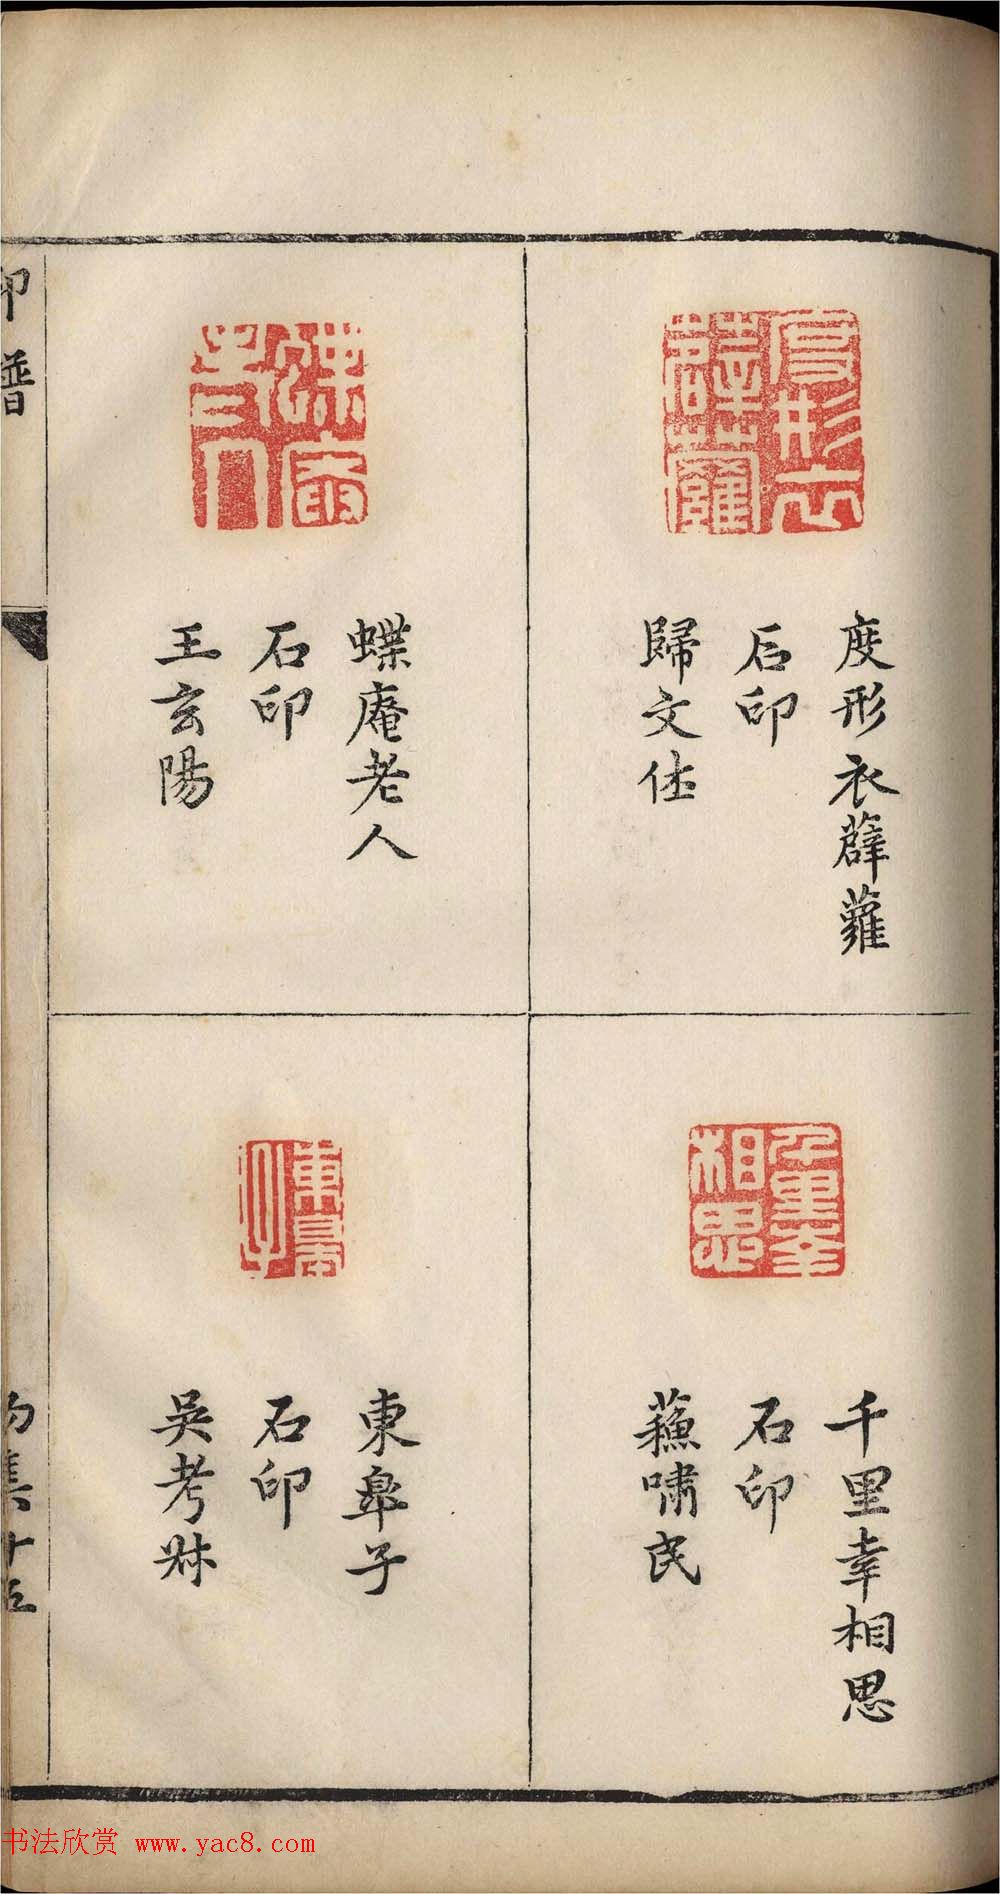 度形衣薜蘿
石印
歸文休
千里幸相思
石印
蘓嘯民
蝶庵老人
石印
王玄陽
東皐子
石印
吳考叔
印譜
集十五
书法欣赏 www.yac8.com